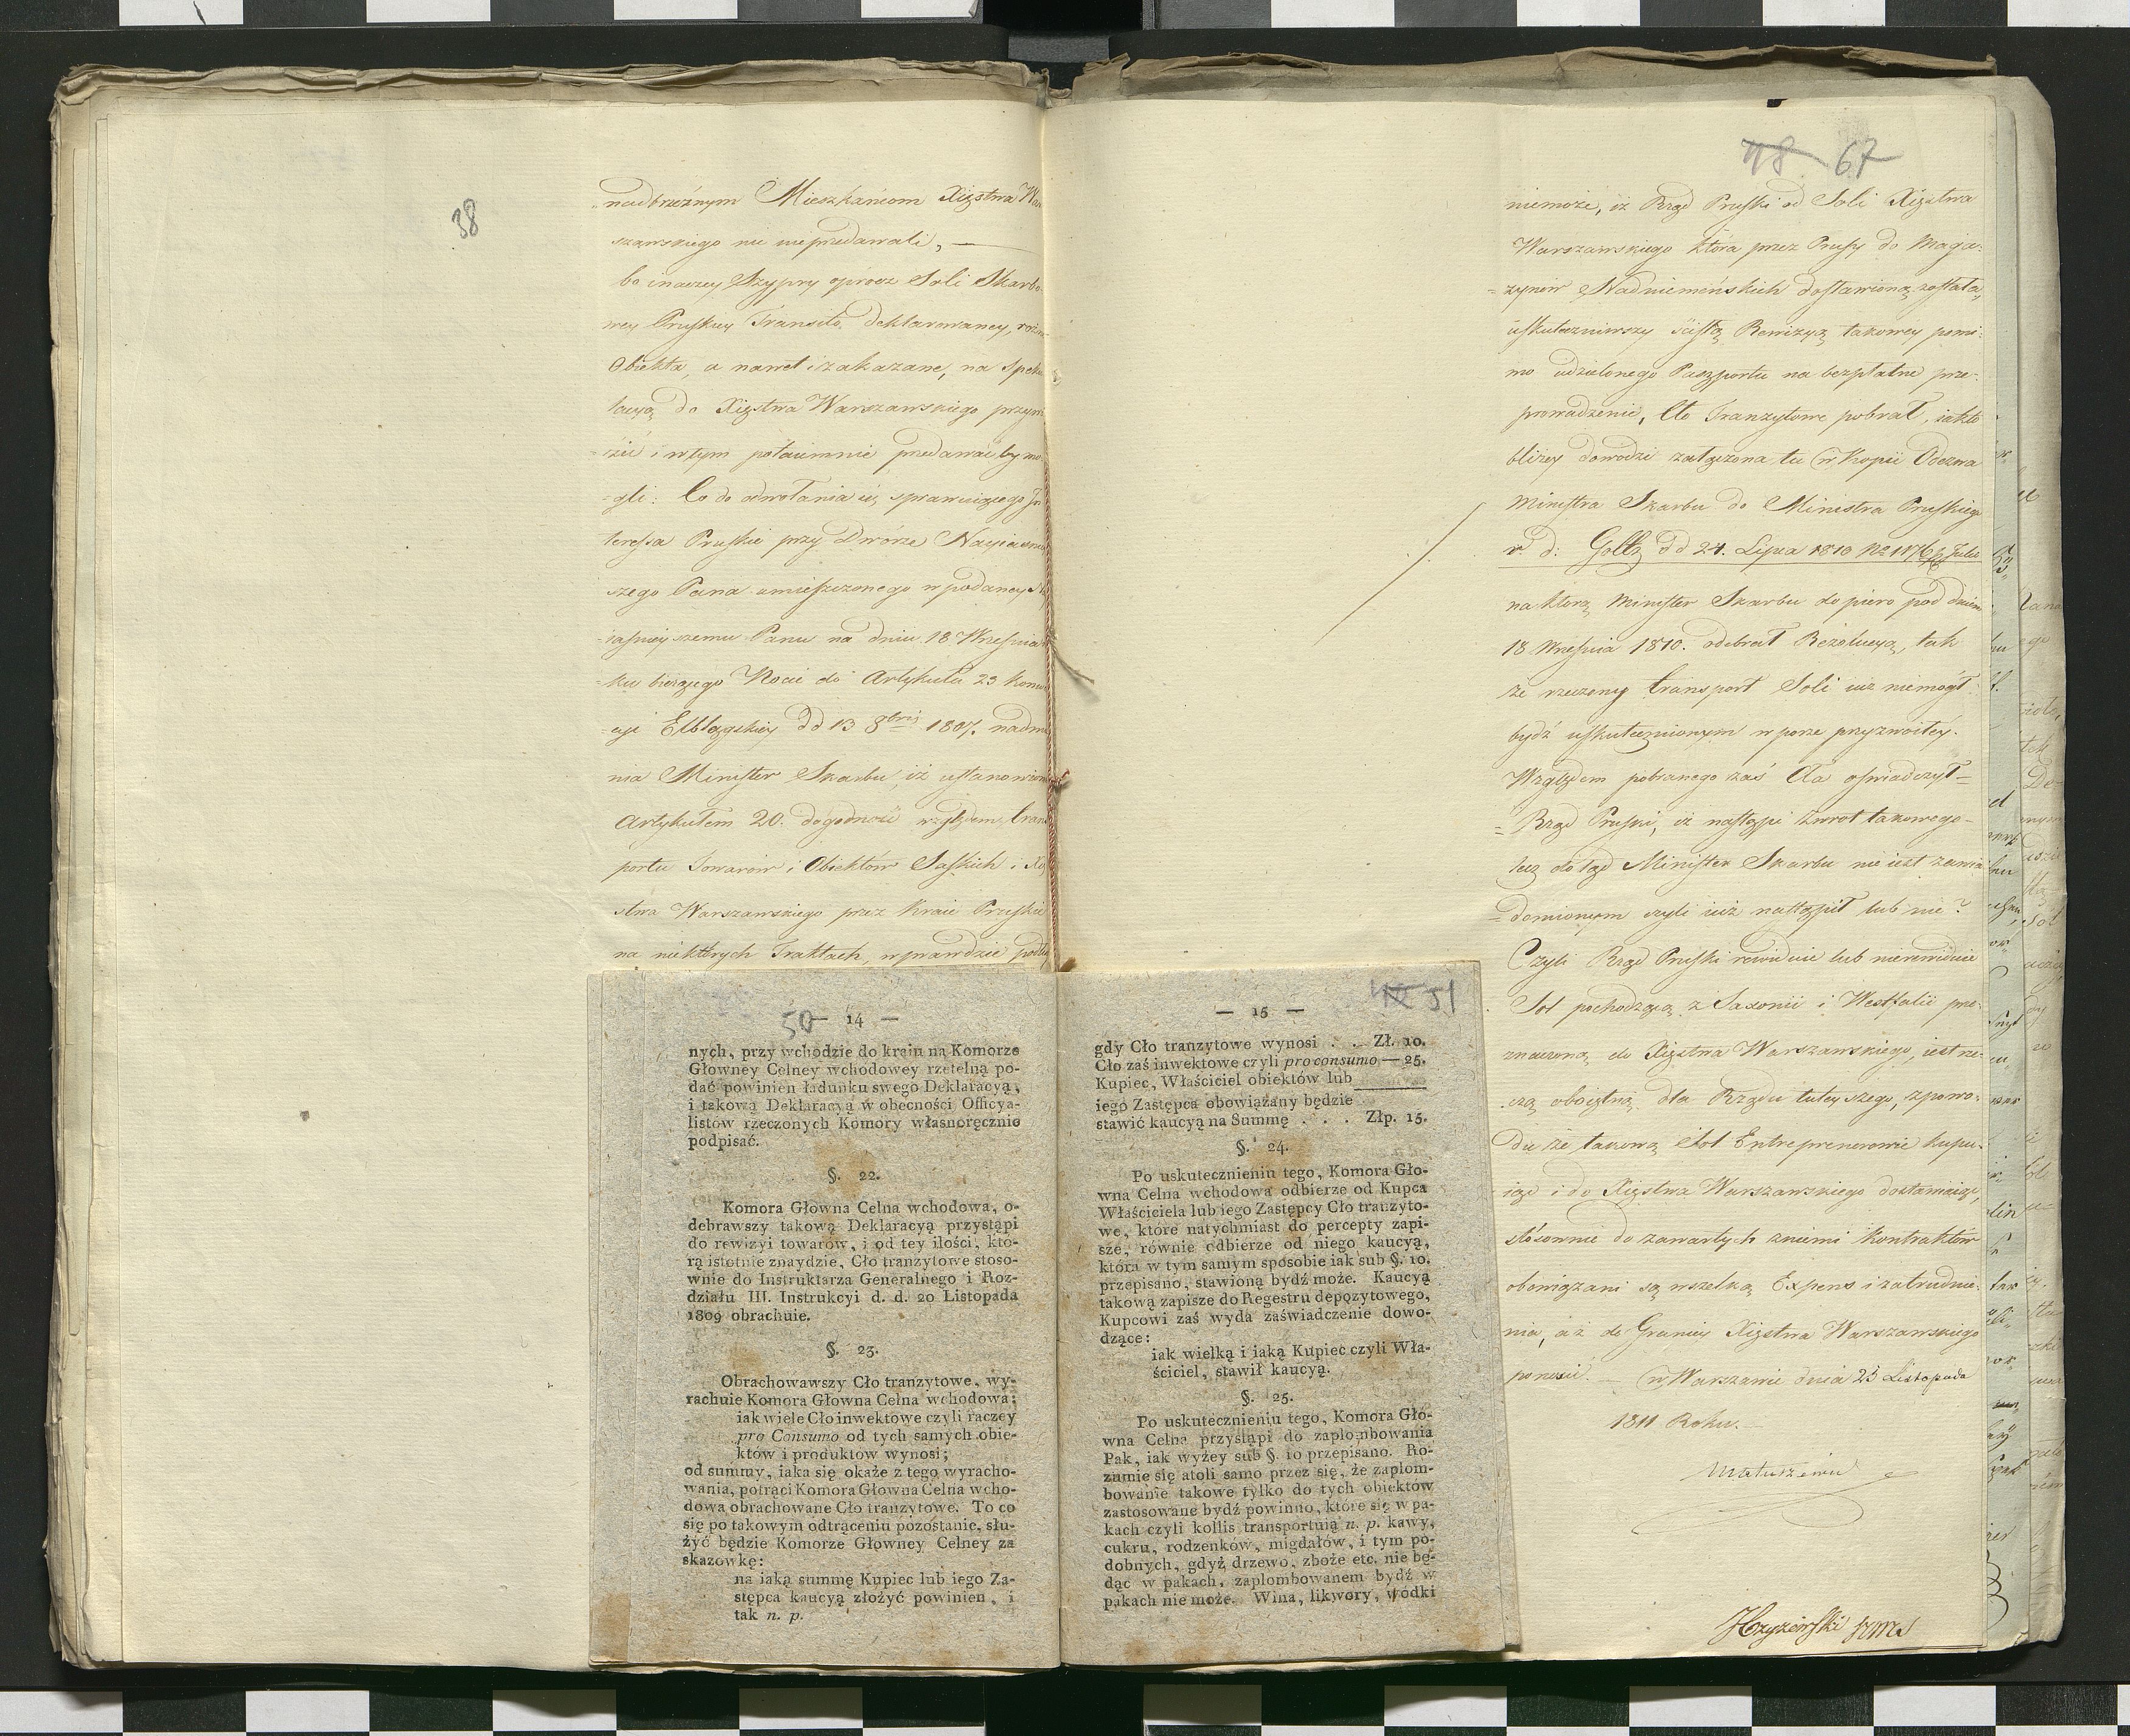 38
nadbrzeżnym Mieszkańcom Xięstwa War
szawskiego nie
bo inaczey Szypry oprócz Soli Skarbo
wey Pruskiey Transito deklarowaney,
Obiekta, a nawet i zakazane, na Speku
lacyą do Xięstwa Warszawskiego
i w tym potaiemnie przedawać by mo
gli. Co do odwołania się, sprawuiącego In
teressa Pruskie przy Dworze Nayiaśniey
szego Pana umieszczonego w podaney
iaśnieyszemu Panu na dniu 18 Września
ku bieżącego Nocie do Artykułu 23 Konwen
cyi Elbląskiey dd 13 8bris 1807. nadmie
nia Minister Skarbu, iż ustanowiona
Artykułem 20. dogodność względem trans
portu Towarów i Obiektów Saskich i Xię
stwa Warszawskiego przez Kraie Pruskie
na niektórych Traktach, wprawdzie
50
— 14 —
nych, przy wchodzie do kraiu na Komorze
Głowney Celney wchodowey rzetelną po-
dać powinien ładunku swego Deklaracyą,
i takową Deklaracyą w obecności Officya-
listów rzeczonych Komory własnoręcznie
podpisać.
§. 22.
Komora Główna Celna wchodowa, o-
debrawszy takową Deklaracyą przystąpi
do rewizyi towarow, i od tey ilości, kto-
rą istotnie znaydzie, Cło tranzytowe stoso-
wnie do Instruktarza Generalnego i Roz-
działu III. Instrukcyi d. d. 20 Listopada
1809 obrachuie.
§. 23.
Obrachowawszy Cło tranzytowe, wy-
rachuie Komora Głowna Celna wchodowa;
iak wiele Cło inwektowe czyli raczey
pro Consumo od tych samych obie-
któw i produktow wynosi;
od summy, iaka się okaże z tego wyracho-
wania, potrąci Komora Głowna Celna wcho-
dowa obrachowane Cło tranzytowe. To co
się po takowym odtrąceniu pozostanie, słu-
żyć będzie Komorze Głowney Celney za
skazowkę:
na iaką summę Kupiec lub iego Za-
stępca kaucyą złożyć powinien, i
tak n. p.
51
— 15 —
gdy Cło tranzytowe wynosi . . Zł. 10.
Cło zaś inwektowe czyli pro consumo — 25.
Kupiec, Właściciel obiektów lub
iego Zastępca obowiązany będzie
stawić kaucyą na Summę . . . Złp. 15.
§. 24.
Po uskutecznieniu tego, Komora Gło-
wna Celna wchodowa odbierze od Kupca
Właściciela lub iego Zastępcy Cło tranzyto-
we, które natychmiast do percepty zapi-
sze, równie odbierze od niego kaucyą,
która w tym samym sposobie iak sub §. 10.
przepisano, stawioną bydź może. Kaucyą
takową zapisze do Regestru depozytowego,
Kupcowi zaś wyda zaświadczenie dowo-
dzące:
iak wielką i iaką Kupiec czyli Wła-
ściciel, stawił kaucyą.
§. 25.
Po uskutecznieniu tego, Komora Głó-
wna Celna przystąpi do zaplombowania
Pak, iak wyżey sub §. 10 przepisano. Ro-
zumie się atoli samo przez się, że zaplom-
bowanie takowe tylko do tych obiektów
zastosowane bydź powinno, które się w pa-
kach czyli kollis transportuią n. p. kawy,
cukru, rodzenków, migdałów, i tym po-
dobnych, gdyż drzewo, zboże etc. nie bę-
dąc w pakach, zaplombowanem bydź w
pakach nie może. Wina, likwory, wódki
48 67
niemoże, iż Rząd Pruski od Soli Xięstwa
Warszawskiego która przez Prusy do Maga-
zynów Nadniemeńskich dostawioną została,
uskuteczniwszy ścisłą Rewizyą takowey pomi-
mo udzielonego Paszportu na bezpłatne prze-
prowadzenie, Cło Tranzytowe pobrał, iak to
bliżey dowodzi załączona tu w Kopii Odezwa
Ministra Skarbu do Ministra Pruskiego
v. d. Goltz dd 24. Lipca 1810
na którą Minister Skarbu dopiero pod dniem
18 Września 1810. odebrał Rezolucyą, tak
że rzeczony transport Soli iuż niemógł
bydź uskutecznionym w porze przyzwoitey.
Względem pobranego zaś Cła oświadczył
Rząd Pruski, iż nastąpi zwrot takowego
lecz dotąd Minister Skarbu nie iest zawia
domionym czyli iuż nastąpił lub nie?
Czyli Rząd Pruski rewiduie lub nierewiduie
Sól pochodzącą z Saxonii i Westfalii prze-
znaczoną do Xięstwa Warszawskiego, iest rze-
czą oboiętną dla Rządu tuteyszego, z powo-
du że takową Sól Entreprenerowie kupu-
iąc i do Xięstwa Warszawskiego dostawiaiąc,
stósownie do zawartych z niemi Kontraktów
obowiązani są wszelką Expens i zatrudnie-
nia, aż do Granicy Xięstwa Warszawskiego
ponosić. — w Warszawie dnia 23 Listopada
1811 Roku.
Matuszewic